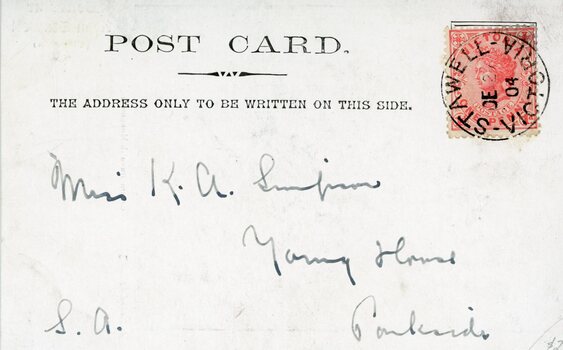 POST CARD.
THE ADDRESS ONLY TO BE WRITTEN ON THIS SIDE.
STAWELL-VICTORIA
DE 2
04
Miss K. A. Simpson
Young House
Parkside
S. A.